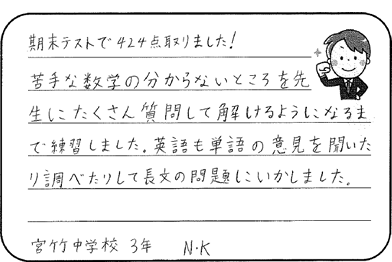 期末テストで424点取りました!
苦手な数学の分からないところを先
生にたくさん質問して解けるようになるま
で練習しました。英語も単語の意見を聞いた
り調べたりして長文の問題にいかしました。
宮竹中学校 3年 N・K